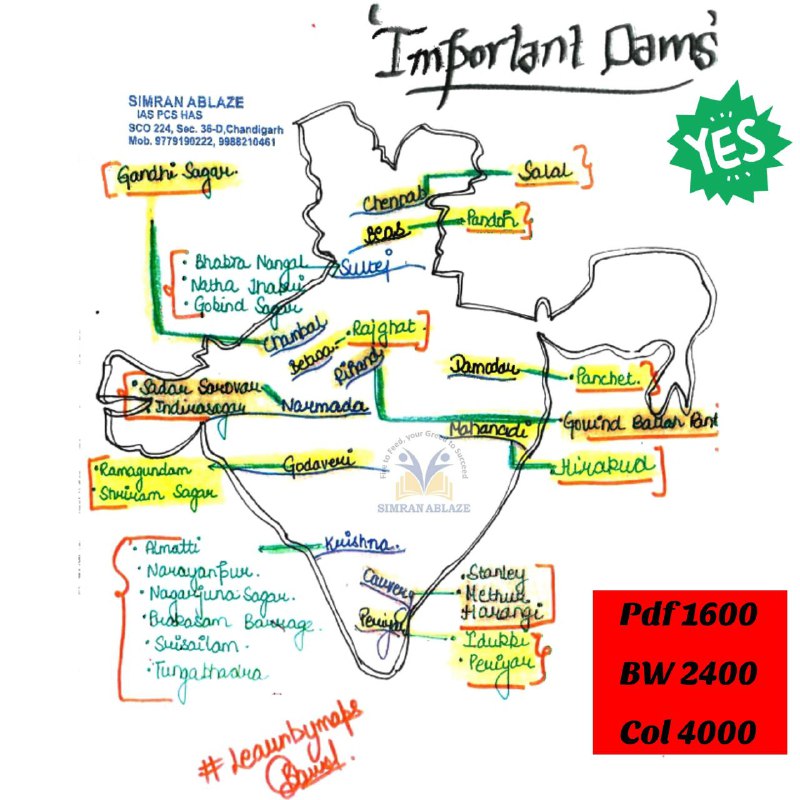 'Important Dams'
SIMRAN ABLAZE
IAS PCS HAS
SCO 224, Sec. 36-D,Chandigarh
Mob. 9779190222, 9988210461
YES
Gandhi Sagar.
Chennab
Salal
Beas
Pandoh
• Bhakra Nangal
• Natha Jhakri
• Gobind Sagar
Sutlej
Chambal
Betwa
• Rajghat.
Rihand
Damodar
• Panchet.
• Sadar Sarovar
• Indirasagar
Narmada
Mahanadi
Govind Ballah Pant
• Hirakud
• Ramagundam
• Shriram Sagar
Godaveri
Free to Feed, your Grow to Succeed
SIMRAN ABLAZE
• Almatti
• Narayanpur.
• Nagarjuna Sagar.
• Prakasam Barrage.
• Srisailam.
• Tungabhadra
Krishna.
Cauvery
• Stanley
• Methur
Harangi
Periyar
• Idukki
• Periyar
Pdf 1600
BW 2400
Col 4000
#Learnbymaps